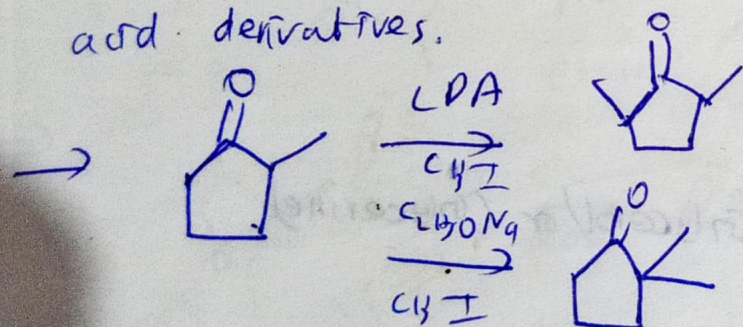 acid derivatives.
O
LDA
O
CH3I
C2H5ONa
O
CH3I